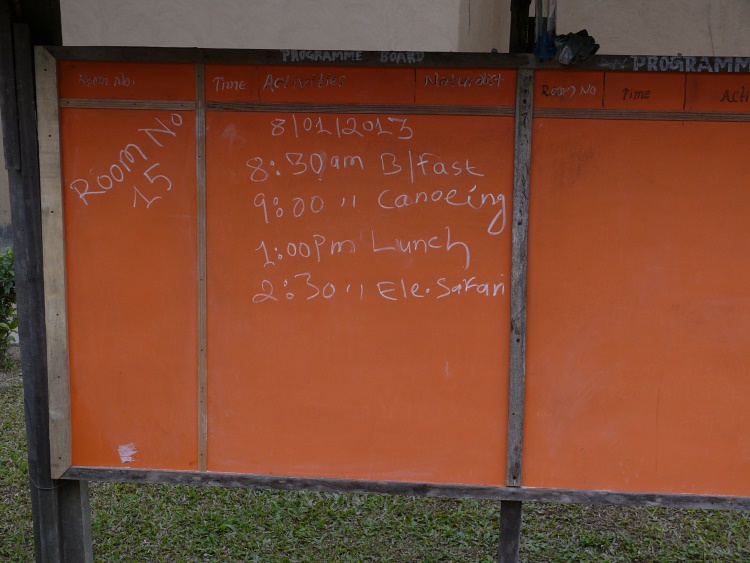 PROGRAMME BOARD
Room No. Time Activities Naturalist
ROOM NO 15
8/01/2013
8:30am B/fast
9:00 " Canoeing
1:00pm Lunch
2:30 " Ele. Safari
PROGRAMM
Room No Time Acti